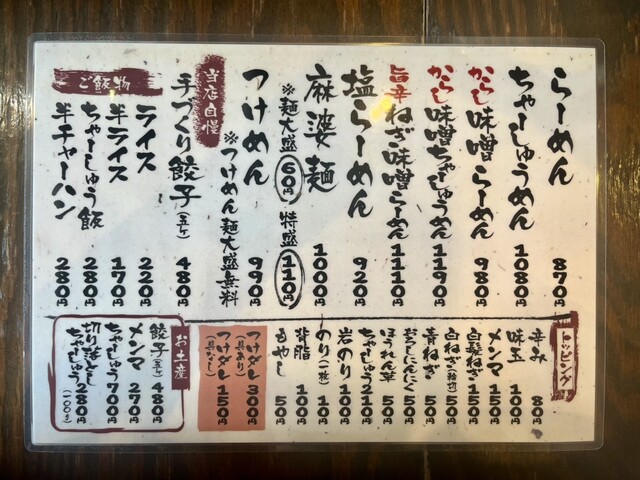 らーめん 870円
ちゃーしゅうめん 1080円
からし味噌らーめん 980円
からし味噌ちゃーしゅうめん 1190円
旨辛ねぎ味噌らーめん 1110円
塩らーめん 920円
麻婆麺 1000円
※麺大盛 60円 特盛 110円
つけめん 990円
※つけめん麺大盛無料
当店自慢
手づくり餃子(五ケ) 480円
ご飯物
ライス 220円
半ライス 170円
ちゃーしゅう飯 280円
半チャーハン 280円
トッピング
辛み 80円
味玉 100円
メンマ 150円
白髪ねぎ 150円
白ねぎ 50円
青ねぎ 50円
おろしにんにく 50円
ほうれん草 50円
ちゃーしゅう 210円
岩のり 100円
のり(一枚) 10円
背脂 100円
もやし 50円
つけダレ(具あり) 300円
つけダレ(具なし) 150円
お土産
餃子(五ケ) 480円
メンマ 270円
ちゃーしゅう 700円
切り落としちゃーしゅう 280円
(100g)